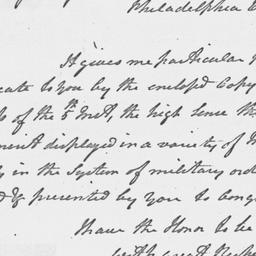 Philadelphia
It gives me particular
cate to you by the enclosed Copy
of the 5th Inst, the high sense th
ment displayed in a variety of
in the System of military
& presented by you to Cong
I have the Honor to be
with great